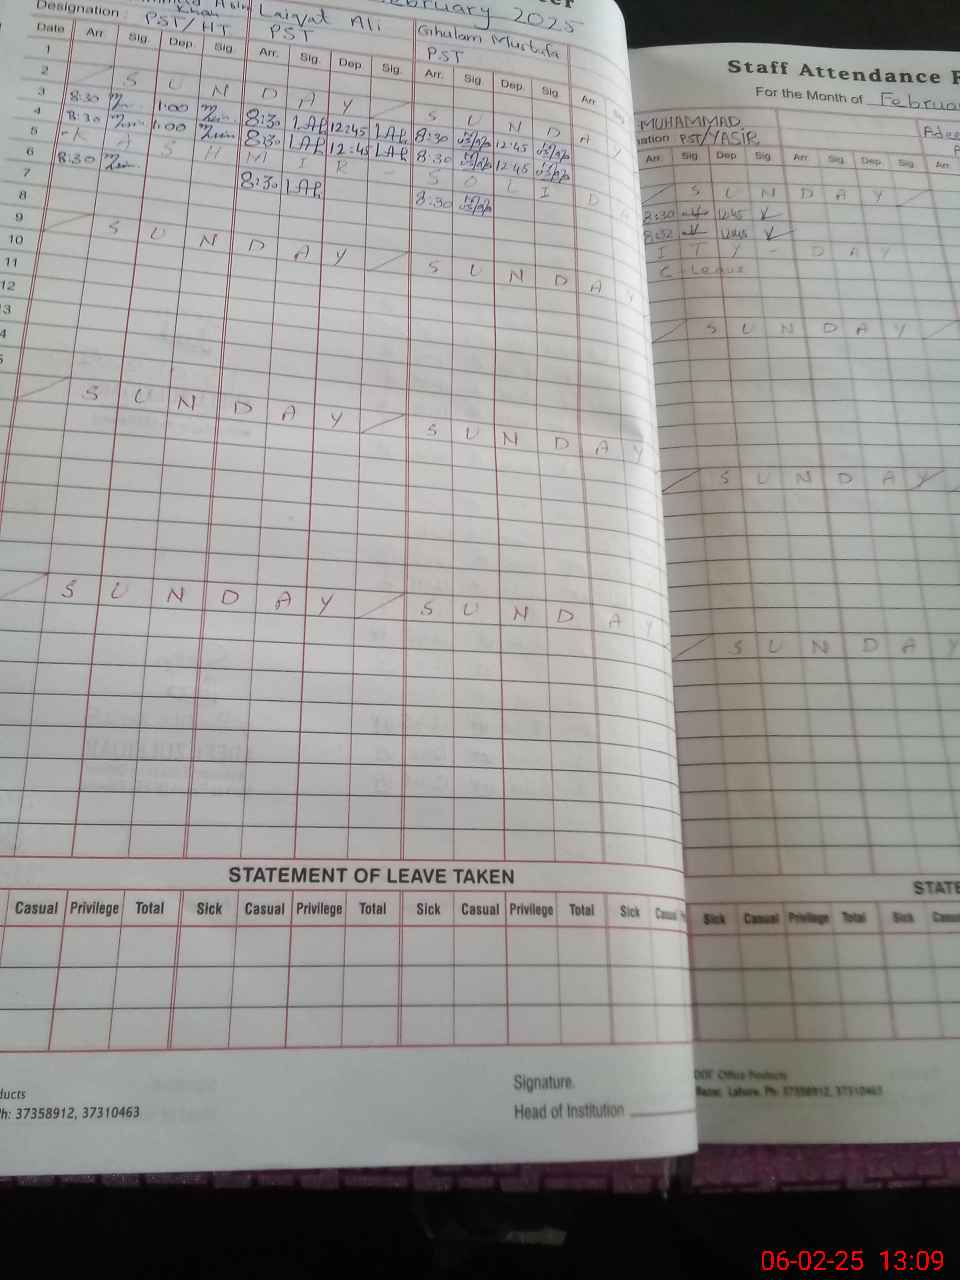 February 2025
Khan Laiqat Ali Ghulam Mustafa
Designation : PST/HT PST PST
Date Arr. Sig. Dep. Sig. Arr. Sig. Dep. Sig. Arr. Sig. Dep. Sig. Arr.
1
2 S U N D A Y S U N D A Y
3 8:30 1:00 8:30 LAP 12:45 LAP 8:30 12:45
4 8:30 1:00 8:30 LAP 12:45 LAP 8:30 12:45
5 - K A S H M I R - S O L I D A
6 8:30 8:30 LAP 8:30
7
8
9 S U N D A Y S U N D A Y
10
11
12
13
S U N D A Y S U N D A Y
S U N D A Y S U N D A Y
STATEMENT OF LEAVE TAKEN
Casual Privilege Total Sick Casual Privilege Total Sick Casual Privilege Total Sick Casual
Signature.
Head of Institution
Ph: 37358912, 37310463
Staff Attendance
For the Month of February
MUHAMMAD
PST/YASIR
Arr. Sig. Dep. Sig. Arr. Sig. Dep. Sig. Arr.
S U N D A Y
8:30 12:45
8:32 12:45
I T Y - D A Y
C - Leave
S U N D A Y
S U N D A Y
S U N D A Y
Sick Casual Privilege Total Sick
Office Products
Lahore. Ph: 37358912, 37310463
06-02-25 13:09